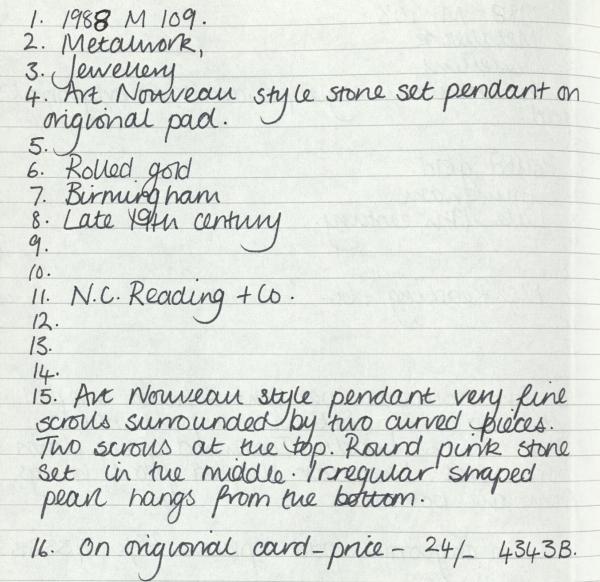 1. 1988 M 109.
2. Metalwork,
3. Jewellery
4. Art Nouveau style stone set pendant on
origional pad.
5.
6. Rolled gold
7. Birmingham
8. Late 19th century
9.
10.
11. N.C. Reading + Co.
12.
13.
14.
15. Art Nouveau style pendant very fine
scrolls surrounded by two curved pieces.
Two scrolls at the top. Round pink stone
set in the middle. Irregular shaped
pearl hangs from the bottom.
16. On origional card - price - 24/- 4343B.